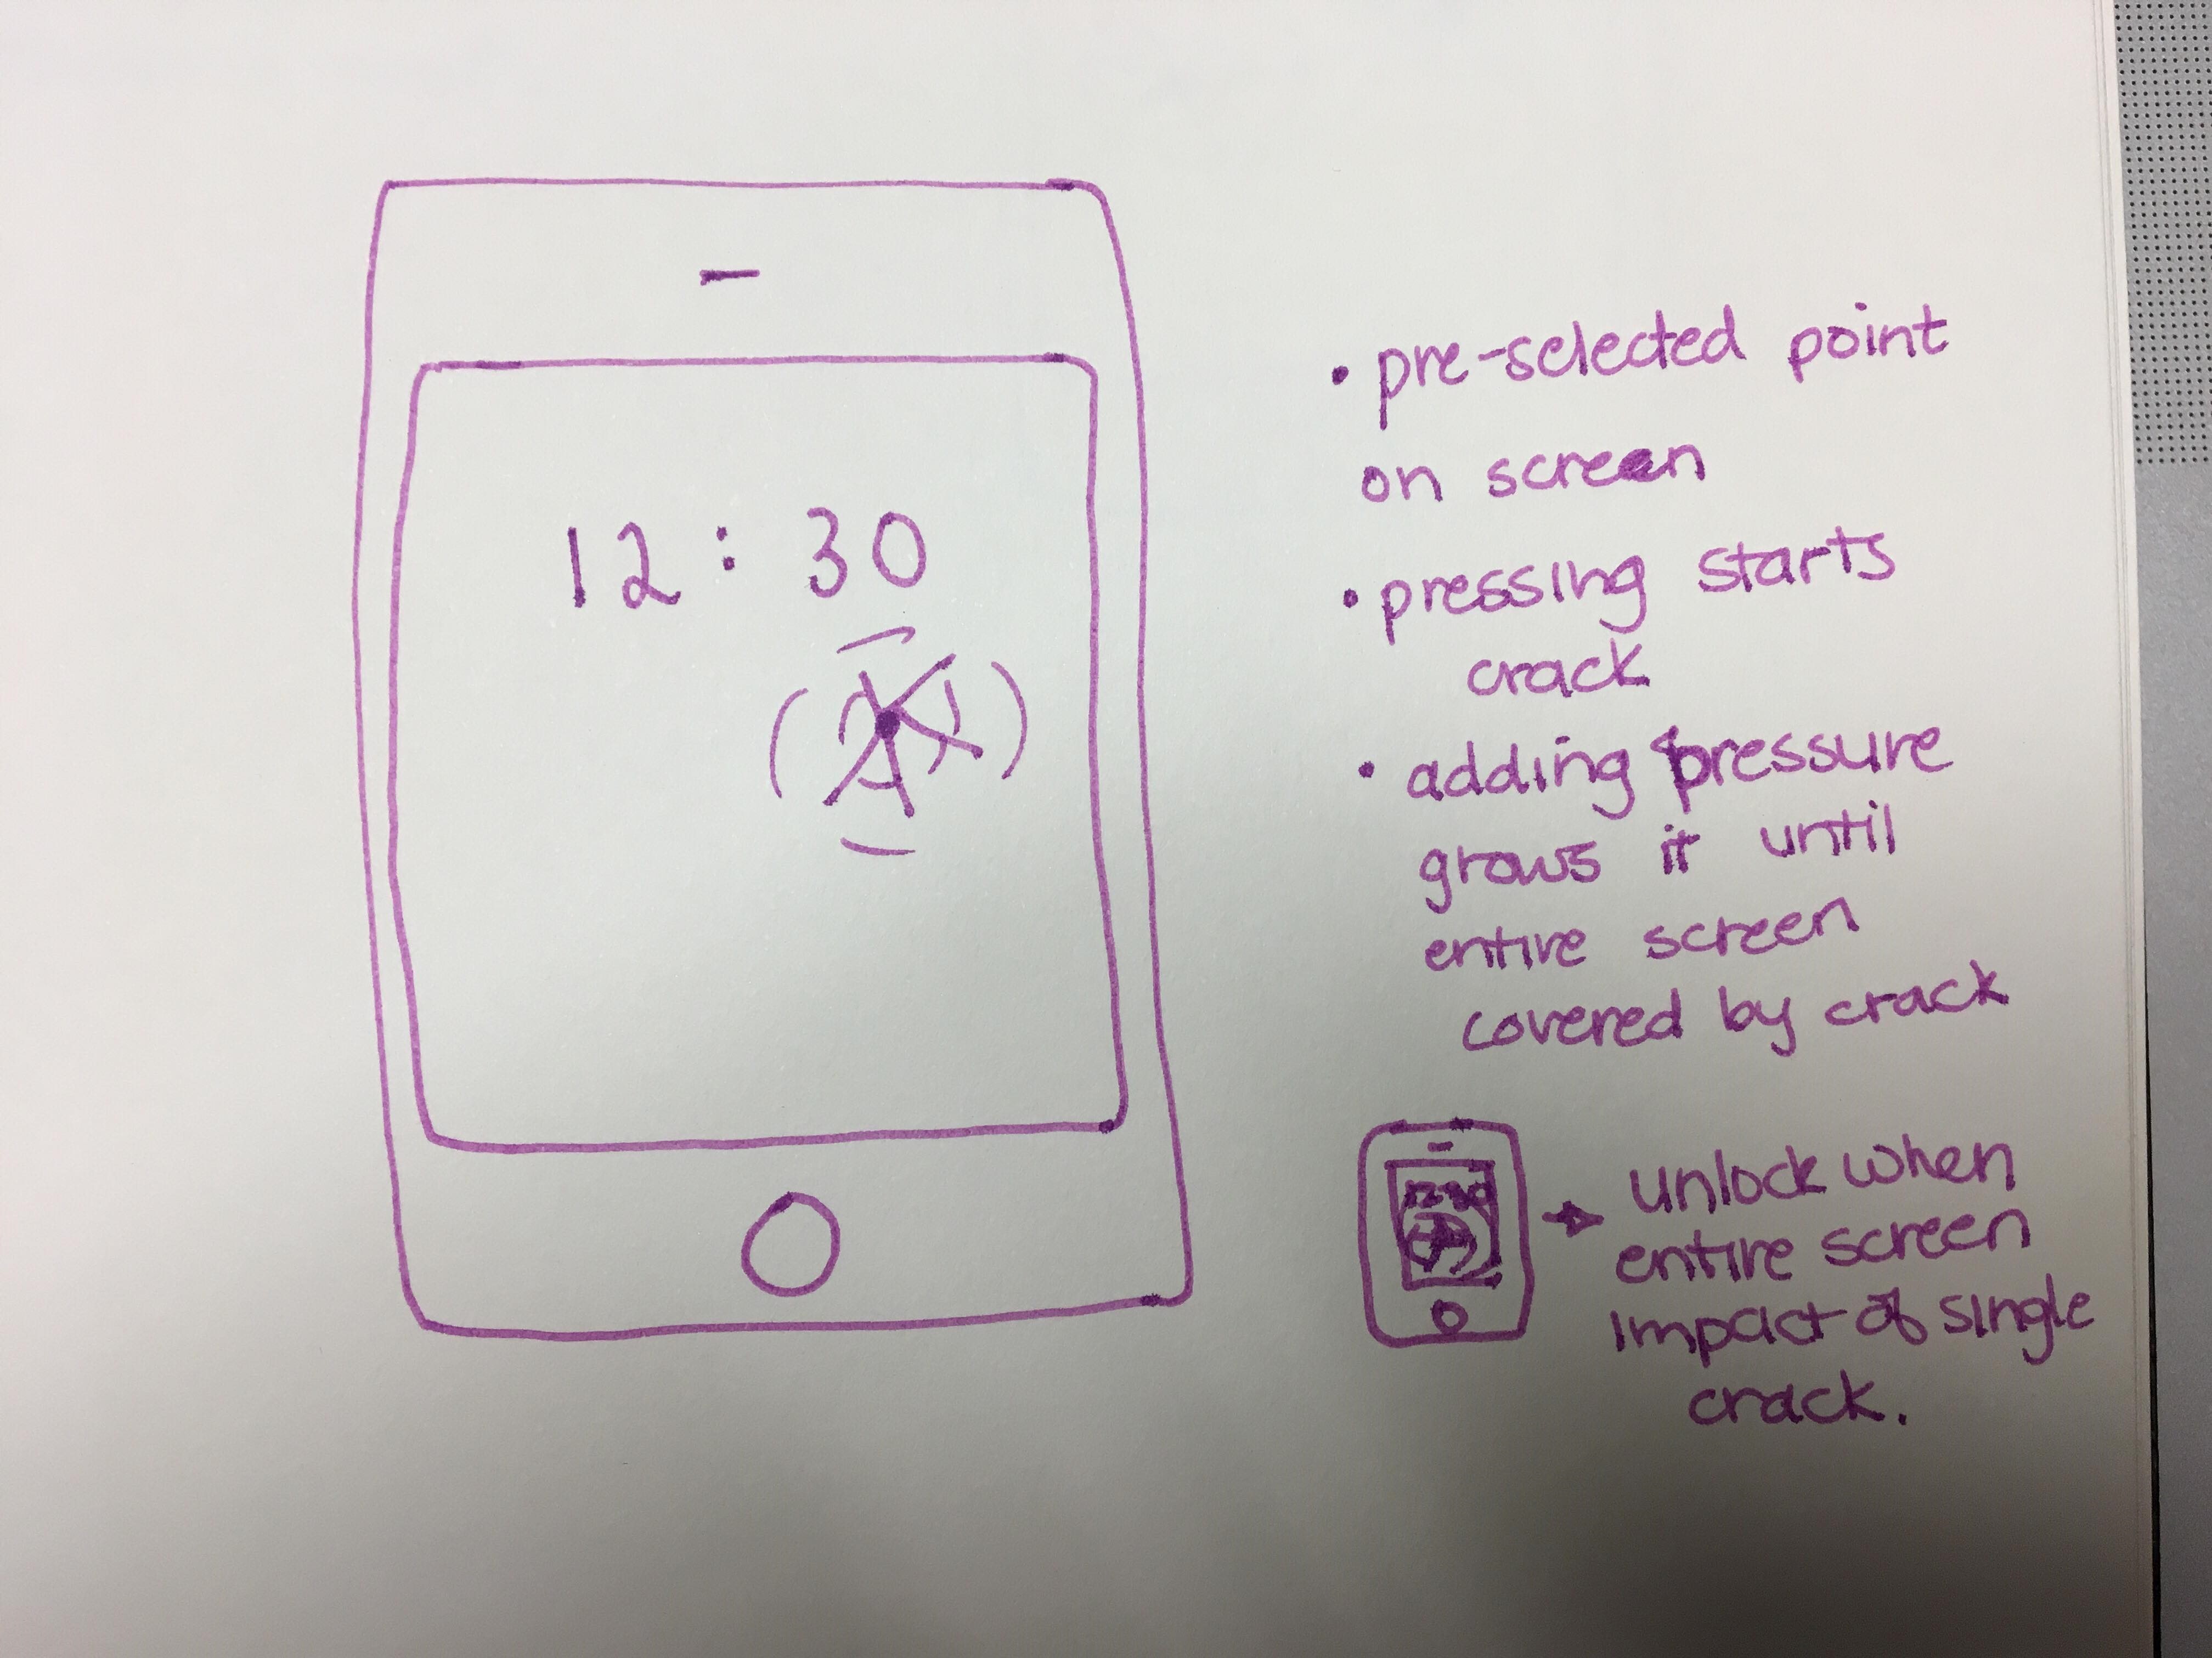 12:30
• pre-selected point
on screen
• pressing starts
crack
• adding pressure
grows it until
entire screen
covered by crack
12:30
unlock when
entire screen
impact of single
crack.